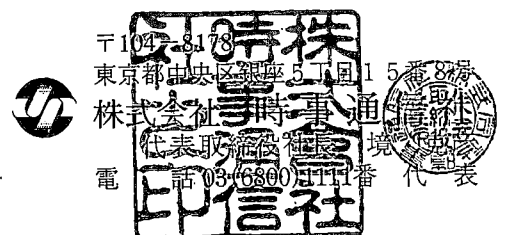 〒104-8178
東京都中央区銀座5丁目15番8号
株式会社 時事通信社
代表取締役社長 境 克彦
電 話 03(6800)1111番 代 表
株式会社時事通信社印